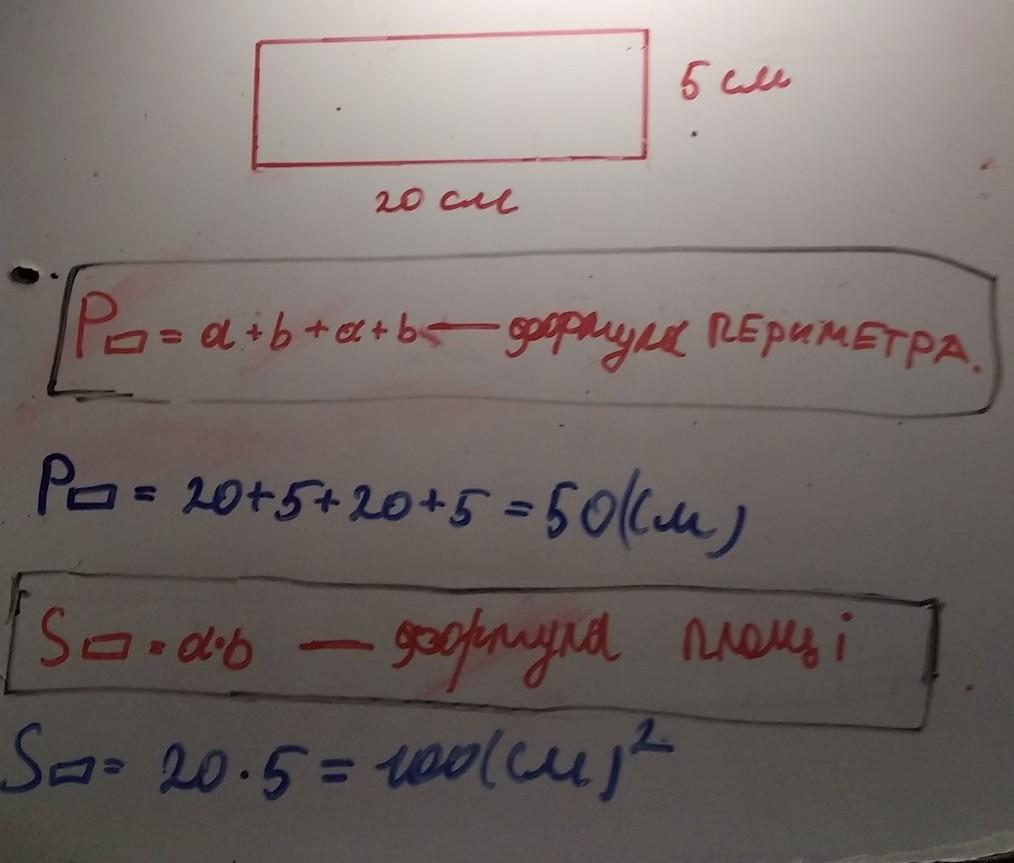 5 см
20 см
P▭ = a + b + a + b — формула ПЕРИМЕТРА.
P▭ = 20+5+20+5 = 50(см)
S▭ = a·b — формула площі
S▭ = 20·5 = 100(см)²